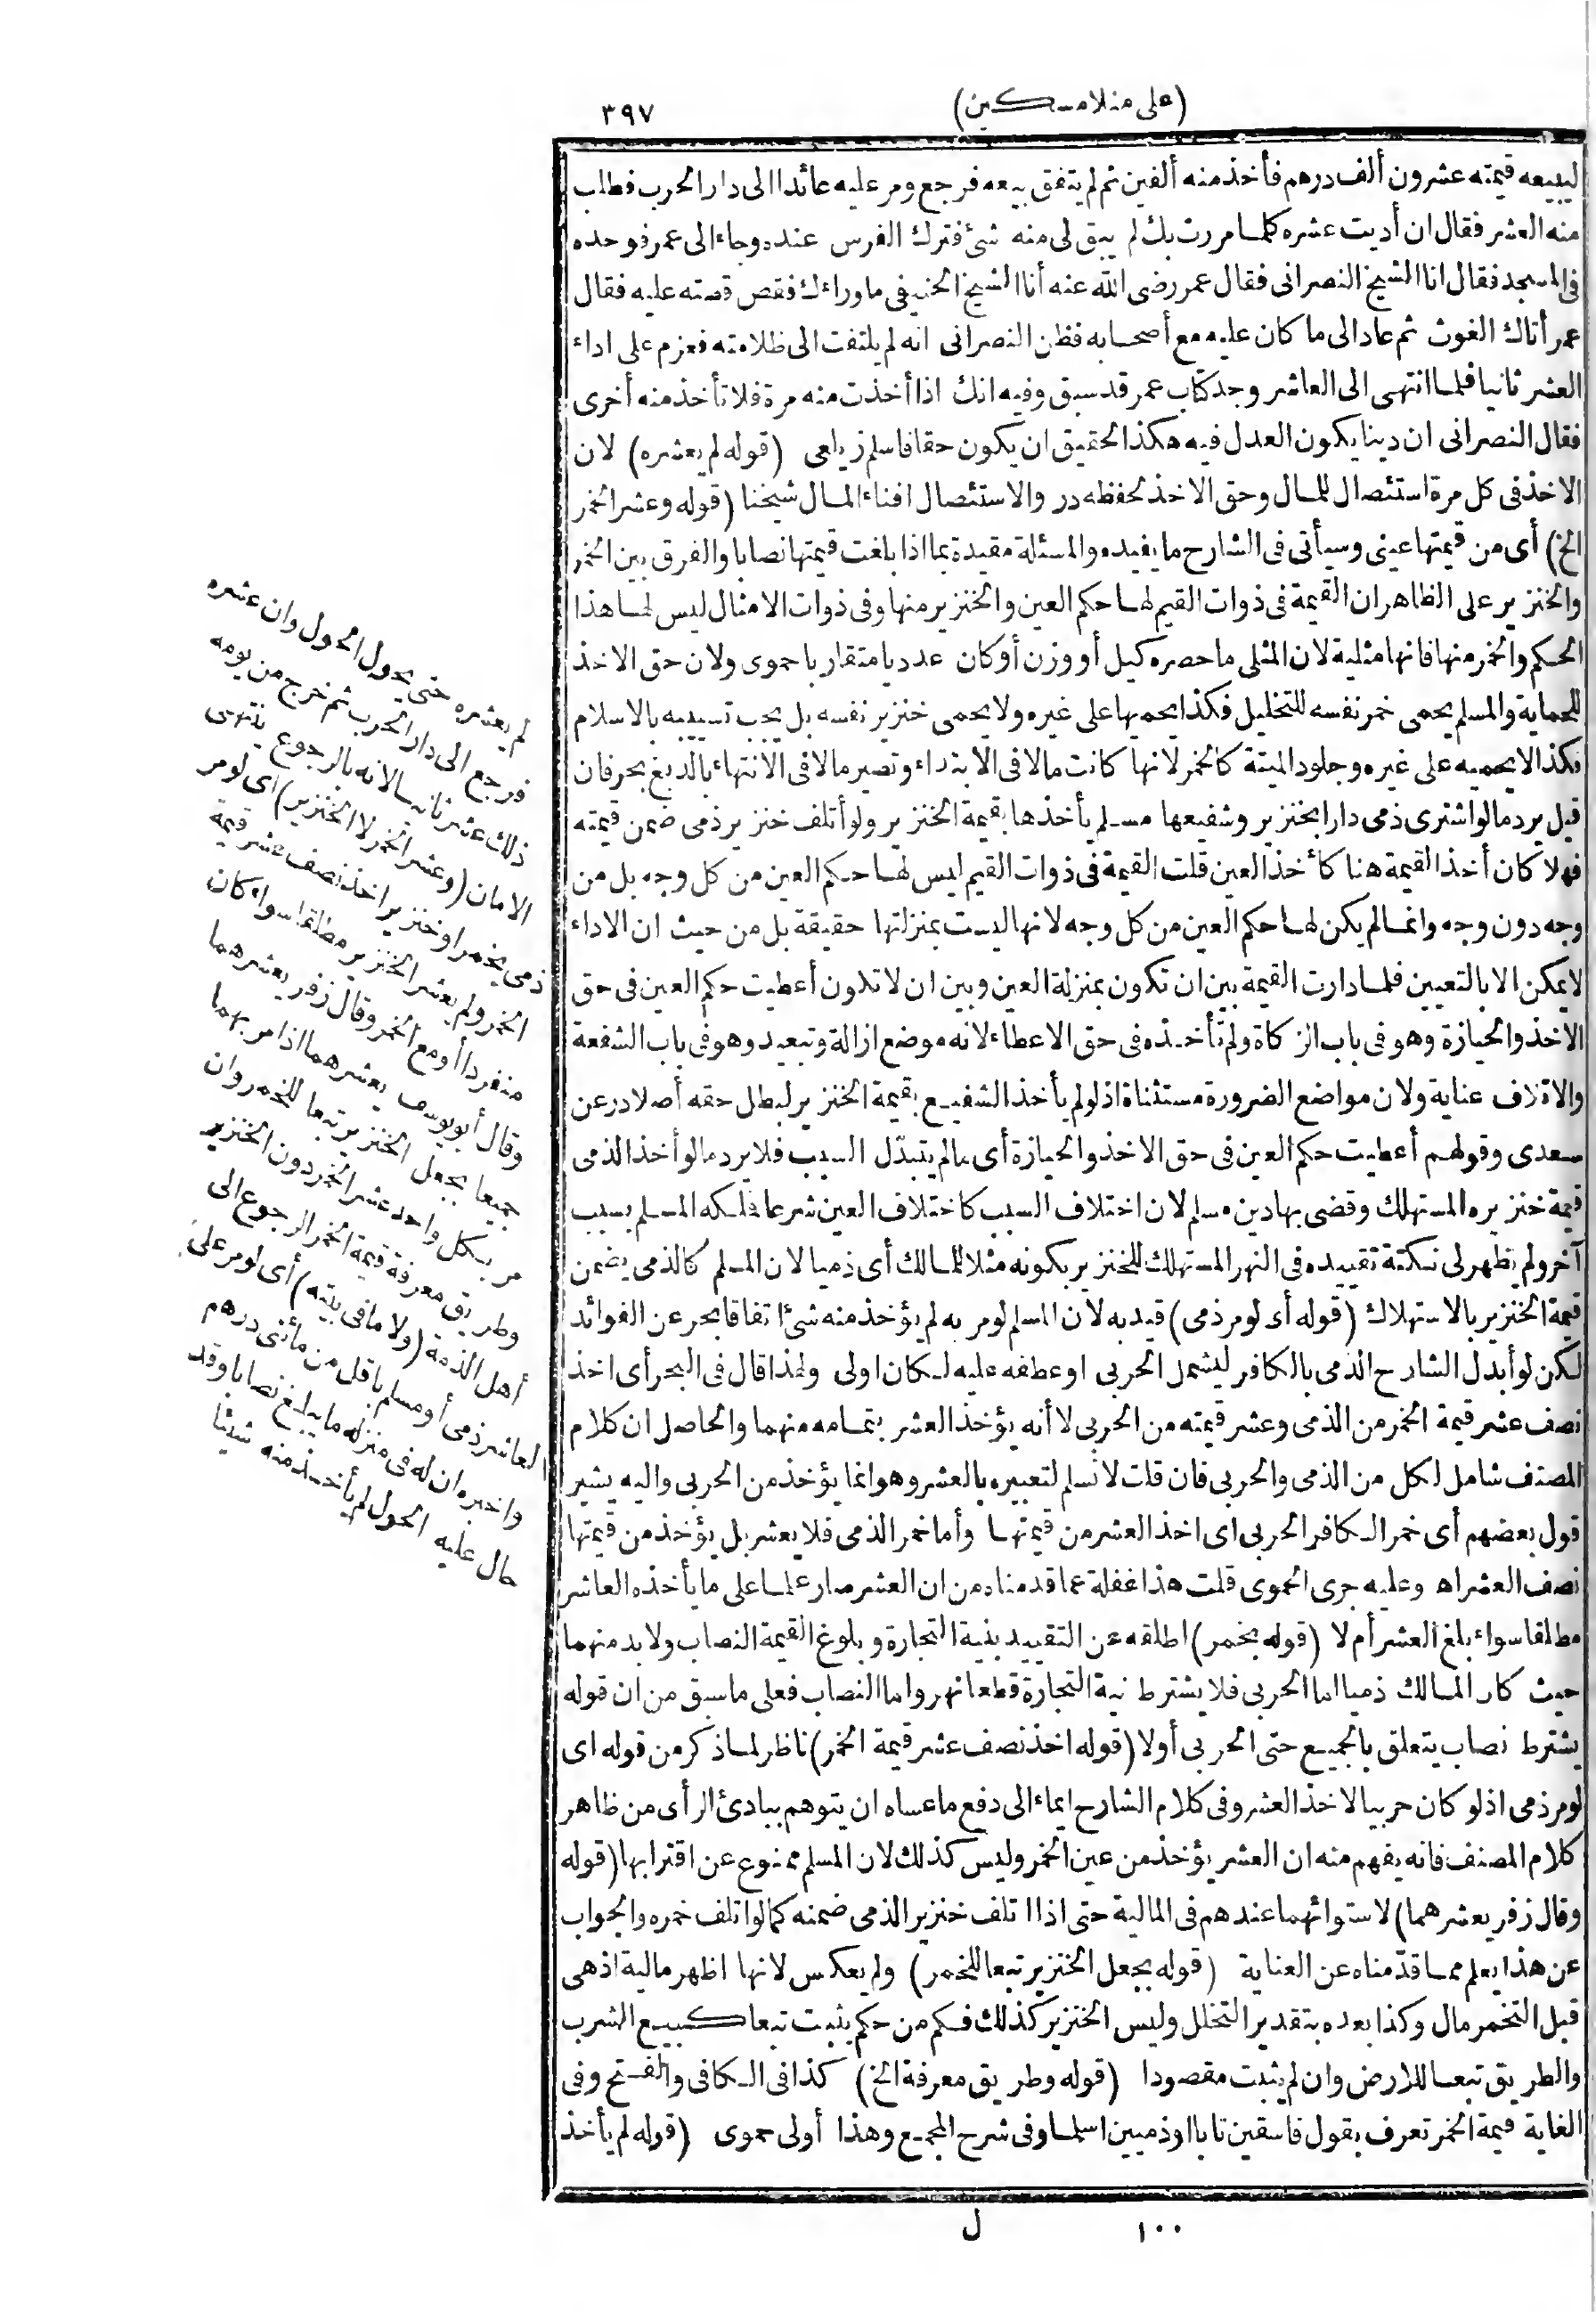 (على منلامسكين)
٣٩٧
ليبيعه قيمته عشرون ألف درهم فأخذ منه ألفين ثم لم يتفق بيعه فرجع ومر عليه عائدا الى دار الحرب فطلب
منه العشر فقال ان أديت عشره كلما مررت بك لم يبق لى منه شئ فترك الفرس عنده وجاء الى عمر فوجده
فى المسجد فقال انا الشيخ النصرانى فقال عمر رضى الله عنه أنا الشيخ الحنيفى ما وراءك فقص قصته عليه فقال
عمر أتاك الغوث ثم عاد الى ما كان عليه مع أصحابه فظن النصرانى انه لم يلتفت الى ظلامته فعزم على اداء
العشر ثانيا فلما انتهى الى العاشر وجد كتاب عمر قد سبق وفيه انك اذا أخذت منه مرة فلا تأخذ منه أخرى
فقال النصرانى ان دينا يكون العدل فيه هكذا لحقيق ان يكون حقا فاسلم زيلعى (قوله لم يعشره) لان
الاخذ فى كل مرة استئصال للمال وحق الاخذ لحفظه درر والاستئصال افناء المال شيخنا (قوله وعشر الخمر
الخ) أى من قيمتها عينى وسيأتى فى الشارح ما يفيده والمسئلة مقيدة بما اذا بلغت قيمتها نصابا والفرق بين الخمر
والخنزير على الظاهر ان القيمة فى ذوات القيم لها حكم العين والخنزير منها وفى ذوات الامثال ليس لها هذا
الحكم والخمر منها فانها مثلية لان المثلى ما حصره كيل أو وزن أو كان عدديا متقاربا حموى ولان حق الاخذ
للحماية والمسلم يحمى خمر نفسه للتخليل فكذا يحميها على غيره ولا يحمى خنزير نفسه بل يجب تسييبه بالاسلام
فكذا لا يحميه على غيره وجلود الميتة كالخمر لانها كانت مالا فى الابتداء وتصير مالا فى الانتهاء بالدبغ بحر فان
قيل يرد ما لو اشترى ذمى دارا بخنزير وشفيعها مسلم يأخذها بقيمة الخنزير ولو أتلف خنزير ذمى ضمن قيمته
فهلا كان أخذ القيمة هنا كأخذ العين قلت القيمة فى ذوات القيم ليس لها حكم العين من كل وجه بل من
وجه دون وجه وانما لم يكن لها حكم العين من كل وجه لانها ليست بمنزلتها حقيقة بل من حيث ان الاداء
لا يمكن الا بالتعيين فلما دارت القيمة بين ان تكون بمنزلة العين وبين ان لا تكون أعطيت حكم العين فى حق
الاخذ والحيازة وهو فى باب الزكاة ولم تأخذه فى حق الاعطاء لانه موضع ازالة وتبعيد وهو فى باب الشفعة
والاتلاف عناية ولان مواضع الضرورة مستثناة اذ لو لم يأخذ الشفيع بقيمة الخنزير لبطل حقه أصلا درر عن
سعدى وقولهم أعطيت حكم العين فى حق الاخذ والحيازة أى ما لم يتبدّل السبب فلا يرد ما لو أخذ الذمى
قيمة خنزيره المستهلك وقضى بها دين مسلم لان اختلاف السبب كاختلاف العين شرعا فملكه المسلم بسبب
آخر ولم يظهر لى نكتة تقييده فى النهر المستهلك للخنزير بكونه مثلا للمالك أى ذميا لان المسلم كالذمى يضمن
قيمة الخنزير بالاستهلاك (قوله أى لو مر ذمى) قيد به لان المسلم لو مر به لم يؤخذ منه شئ اتفاقا بحر عن الفوائد
لكن لو أبدل الشارح الذمى بالكافر ليشمل الحربى او عطفه عليه لكان اولى ولهذا قال فى البحر أى اخذ
نصف عشر قيمة الخمر من الذمى وعشر قيمته من الحربى لا أنه يؤخذ العشر بتمامه منهما والحاصل ان كلام
المصنف شامل لكل من الذمى والحربى فان قلت لا نسلم لتعبيره بالعشر وهو انما يؤخذ من الحربى واليه يشير
قول بعضهم أى خمر الكافر الحربى اى اخذ العشر من قيمتها وأما خمر الذمى فلا يعشر بل يؤخذ من قيمتها
نصف العشر اه وعليه جرى الحموى قلت هذا غفلة عما قدمناه من ان العشر صار علما على ما يأخذه العاشر
مطلقا سواء بلغ العشر أم لا (قوله بخمر) اطلقه عن التقييد بنية التجارة وبلوغ القيمة النصاب ولا بد منهما
حيث كان المالك ذميا اما الحربى فلا يشترط نية التجارة قطعا نهر واما النصاب فعلى ما سبق من ان قوله
يشترط نصاب يتعلق بالجميع حتى الحربى أولا (قوله اخذ نصف عشر قيمة الخمر) ناظر لما ذكر من قوله اى
لو مر ذمى اذ لو كان حربيا لاخذ العشر وفى كلام الشارح ايماء الى دفع ما عساه ان يتوهم ببادئ الرأى من ظاهر
كلام المصنف فانه يفهم منه ان العشر يؤخذ من عين الخمر وليس كذلك لان المسلم ممنوع عن اقترابها (قوله
وقال زفر يعشرهما) لاستوائهما عندهم فى المالية حتى اذا اتلف خنزير الذمى ضمنه كما لو اتلف خمره والجواب
عن هذا يعلم مما قدّمناه عن العناية (قوله بجعل الخنزير تبعا للخمر) ولم يعكس لانها اظهر مالية اذ هى
قبل التخمر مال وكذا بعده بتقدير التخلل وليس الخنزير كذلك فكم من حكم يثبت تبعا كبيع الشرب
والطريق تبعا للارض وان لم يثبت مقصودا (قوله وطريق معرفة الخ) كذا فى الكافى والفتح وفى
الغاية قيمة الخمر تعرف بقول فاسقين تابا او ذميين اسلما وفى شرح المجمع وهذا أولى حموى (قوله لم يأخذ
لم يعشره حتى يحول الحول وان عشره
فرجع الى دار الحرب ثم خرج من يومه
ذلك عشر ثانيا لانه بالرجوع ينتهى
الامان (وعشر الخمر لا الخنزير) اى لو مر
ذمى بخمر او خنزير اخذ نصف عشر قيمة
الخمر ولم يعشر الخنزير مطلقا سواء كان
منفردا أو مع الخمر وقال زفر يعشرهما
وقال أبو يوسف يعشرهما اذا مر بهما
جميعا بجعل الخنزير تبعا للخمر وان
مر بكل واحد عشر الخمر دون الخنزير
وطريق معرفة قيمة الخمر الرجوع الى
أهل الذمة (ولا ما فى بيته) أى لو مر على
العاشر ذمى أو مسلم باقل من مائتى درهم
واخبره ان له فى منزله ما يبلغ نصابا وقد
حال عليه الحول لم يأخذ منه شيئا
١٠٠
ل